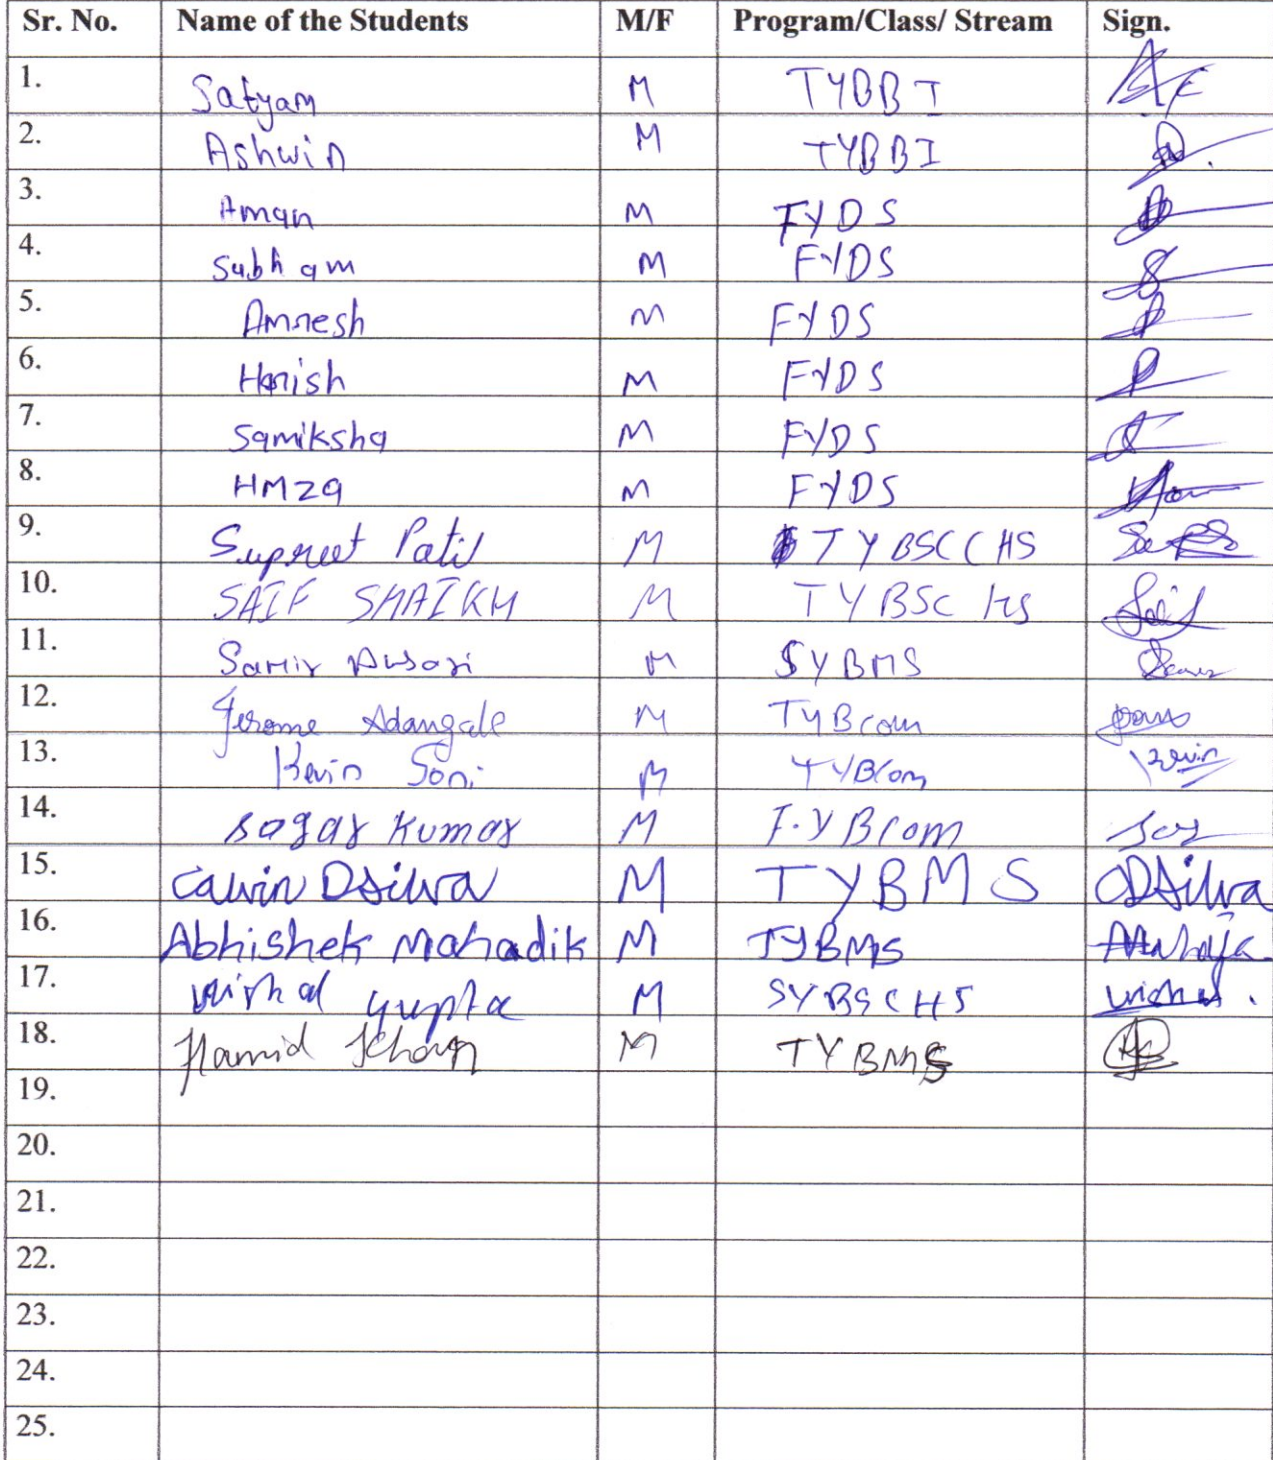 Sr. No. Name of the Students M/F Program/Class/ Stream Sign.
1. Satyam M TYBBI
2. Ashwin M TYBBI
3. Aman M FYDS
4. Subham M FYDS
5. Amnesh M FYDS
6. Harish M FYDS
7. Samiksha M FYDS
8. HMZa M FYDS
9. Supreet Patil M TYBSCCHS
10. SAIF SHAIKH M TYBSC HS
11. Samir M SYBMS
12. Jerome Adangale M TYBcom
13. Kevin Soni M TYBcom Kevin
14. sagar Kumar M F.YBcom
15. Calvin Dsilva M TYBMS CDSilva
16. Abhishek Mahadik M TYBMS
17. Vishal gupta M SYBSCHS vishal.
18. Hamid Khan M TYBMS
19.
20.
21.
22.
23.
24.
25.